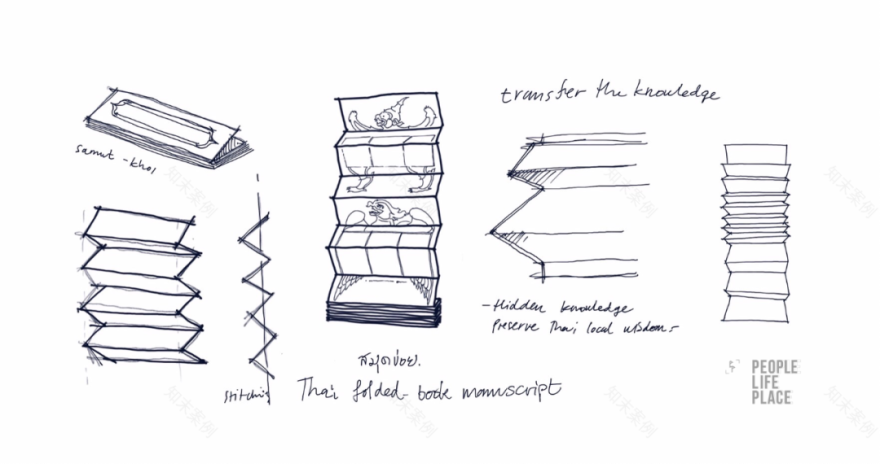 transfer the knowledge
samut - khoi
- Hidden knowledge
Preserve Thai local wisdom -
สมุดข่อย.
stitching
Thai folded- book manuscript
PEOPLE
LIFE
PLACE
知末案例